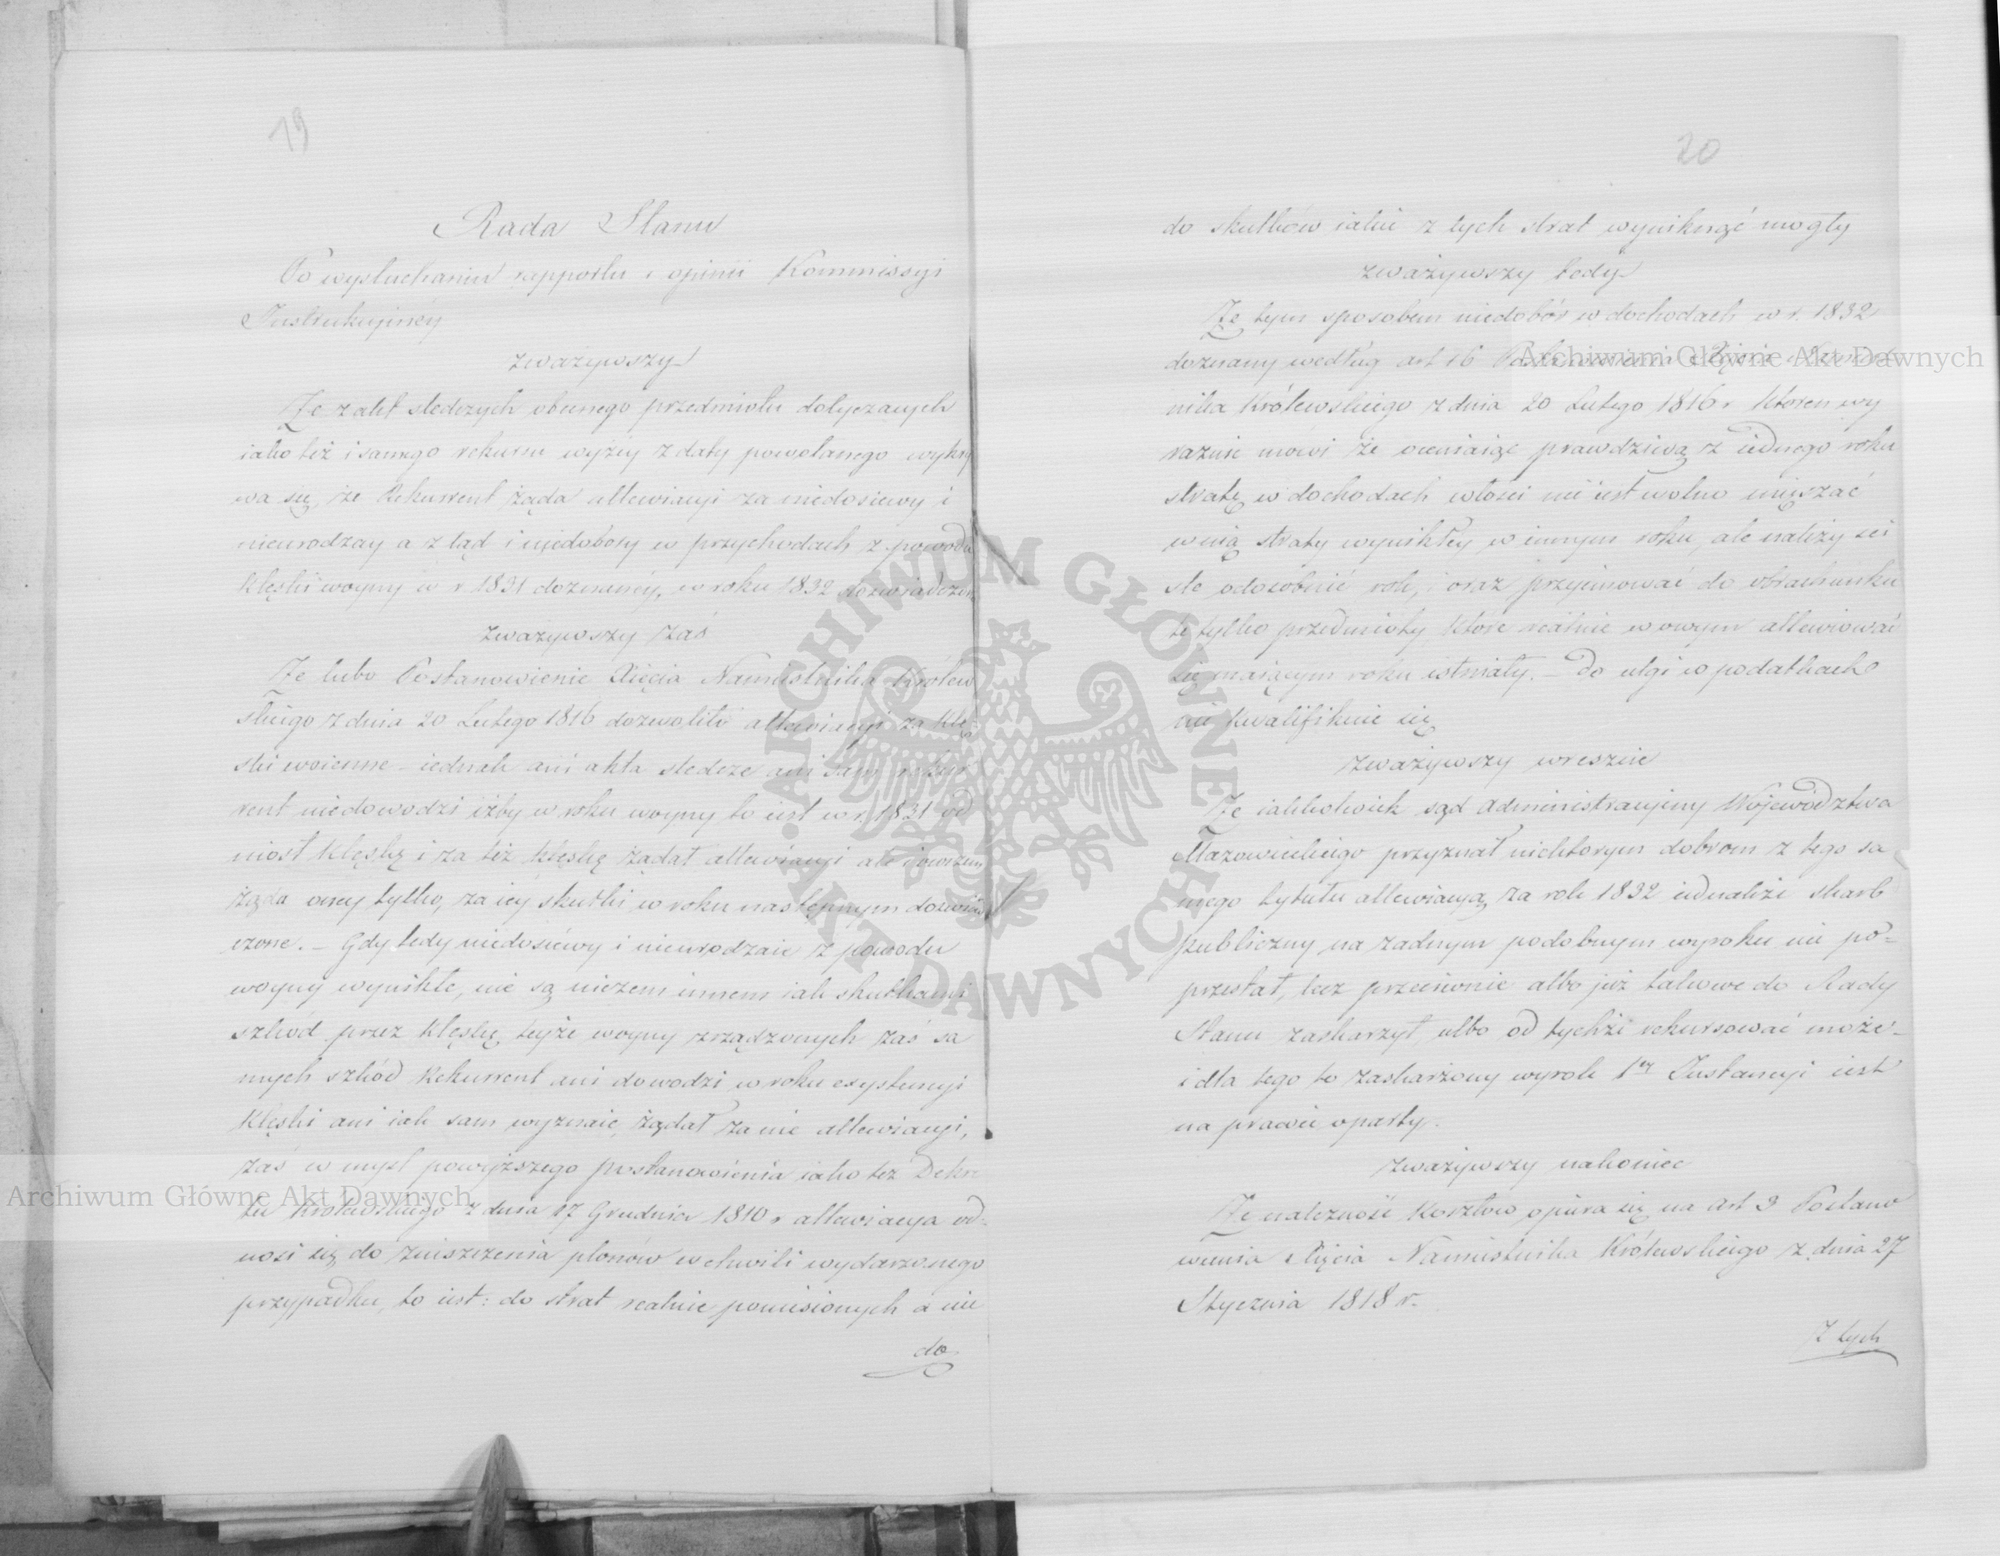 19
Rada Stanu
Po wysłuchaniu rapportu i opinii Kommissyi
Instrukcyinéy
zważywszy
Że z akt śledczych obecnego przedmiotu dotyczących
iako też i samego rekursu wyżéy z daty powołanego wykry
wa się, że Rekurrent żąda allewiacyi za niedosiewy i
nieurodzay a z tąd i niedobory w przychodach z powodu
klęski woyny w r 1831 doznanéy, w roku 1832 doświadczon
zważywszy zaś
Że lubo Postanowienie Xięcia Namiestnika Królew
skiego z dnia 20 Lutego 1816 dozwoliło allewiacyi za klę-
ski woienne – iednak ani akta śledcze ani sam rekur
rent niedowodzi iżby w roku woyny to iest w r. 1831 od
niosł klęskę i za też klęskę żądał allewiacyi ale
żąda oney tylko, za iéy skutki w roku następnym doświad
czone. – Gdy tedy niedosiéwy i nieurodzaie z powodu
woyny wynikłe, nie są niczem innem iak skutkami
szkód przez klęskę téyże woyny zrządzonych zaś sa
mych szkód Rekurrent ani dowodzi w roku exystencyi
klęski ani iak sam wyznaie, żądał za nie allewiacyi,
zaś w myśl powyższego postanowienia iako też Dekre
tu Królewskiego z dnia 17 Grudnia 1810 r allewiacya od-
nosi się do zniszczenia plonów w chwili wydarzonego
przypadku, to iest: do strat realnie poniesionych a nie
do
20
do skutków iakie z tych strat wyniknąć mogły
zważywszy tedy
Że tym sposobem niedobór w dochodach w r. 1832
doznany według art 16 Postanowienia Xięcia Namiest
nika Królewskiego z dnia 20 Lutego 1816 r któren wy
raźnie mówi że oceniaiąc prawdziwą z iednego roku
stratę w dochodach włości nie iest wolno mięszać
w nią straty wynikłey w innym roku, ale należy ści
śle odosobnić rok, i oraz przyimować do obrachunku
te tylko przedmioty które realnie w owym allewiować
się maiącym roku istniały. – Do ulgi w podatkach
nie kwalifikuie się
zważywszy wreszcie
Że iakkolwiek sąd Administracyiny Województwa
Mazowieckiego przyznał niektórym dobrom z tego sa
mego tytułu allewiacyą za rok 1832 iednakże skarb
publiczny na żadnym podobnym wyroku nie po-
przestał, lecz przeciwnie albo już takowe do Rady
Stanu zaskarżył, albo od tychże rekursować może –
i dla tego to zaskarżony wyrok 1éy Instancyi iest
na prawie oparty.
zważywszy nakoniec
Że należność kosztów opiera się na art 3 Postano
wienia Xięcia Namiestnika Królewskiego z dnia 27
Stycznia 1818 r.
Z tych
Archiwum Główne Akt Dawnych
Archiwum Główne Akt Dawnych
ARCHIWUM GŁÓWNE AKT DAWNYCH